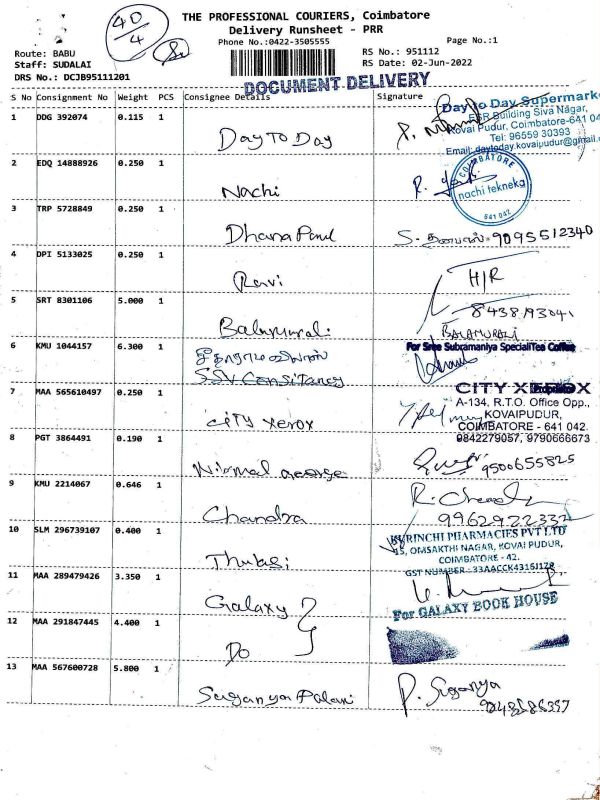 40/4
THE PROFESSIONAL COURIERS, Coimbatore
Delivery Runsheet - PRR
Phone No.:0422-3505555
Page No.:1
Route: BABU
Staff: SUDALAI
DRS No.: DCJB95111201
RS No.: 951112
RS Date: 02-Jun-2022
DOCUMENT DELIVERY
S No Consignment No Weight PCS Consignee Details Signature
1 DDG 392074 0.115 1 Day To Day
Day to Day Supermark
ESR Building Siva Nagar,
Kovai Pudur, Coimbatore-641 04
Tel: 96559 30393
Email: daytoday.kovaipudur@gmail.c
2 EDQ 14888926 0.250 1 Nachi
COIMBATORE
nachi tekneka
641 042
3 TRP 5728849 0.250 1 Dhana Paul
9095512340
4 DPI 5133025 0.250 1 Ravi
H/R
5 SRT 8301106 5.000 1 Balamurali
BALAMURALI
6 KMU 1044157 6.300 1
SSV Consitancy
For Sree Subramaniya SpecialiTea Coffee
7 MAA 565610497 0.250 1 City Xerox
CITY XEROX
A-134, R.T.O. Office Opp.,
KOVAIPUDUR,
COIMBATORE - 641 042.
9842279057, 9790666673
8 PGT 3864491 0.190 1 Nirmal George
9500655825
9 KMU 2214067 0.646 1 Chandra
10 SLM 296739107 0.400 1 Thulasi
KURINCHI PHARMACIES PVT LTD
45, OMSAKTHI NAGAR, KOVAI PUDUR,
COIMBATORE - 42.
11 MAA 289479426 3.350 1 Galaxy
For GALAXY BOOK HOUSE
12 MAA 291847445 4.400 1 Do
13 MAA 567600728 5.800 1 Suganya Palani
P. Suganya